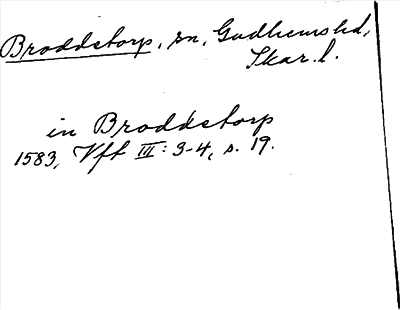 Broddetorp, sn, Gudhems hd,
Skar. l.
in Broddetorp
1583, Vft III: 3-4, s. 19.